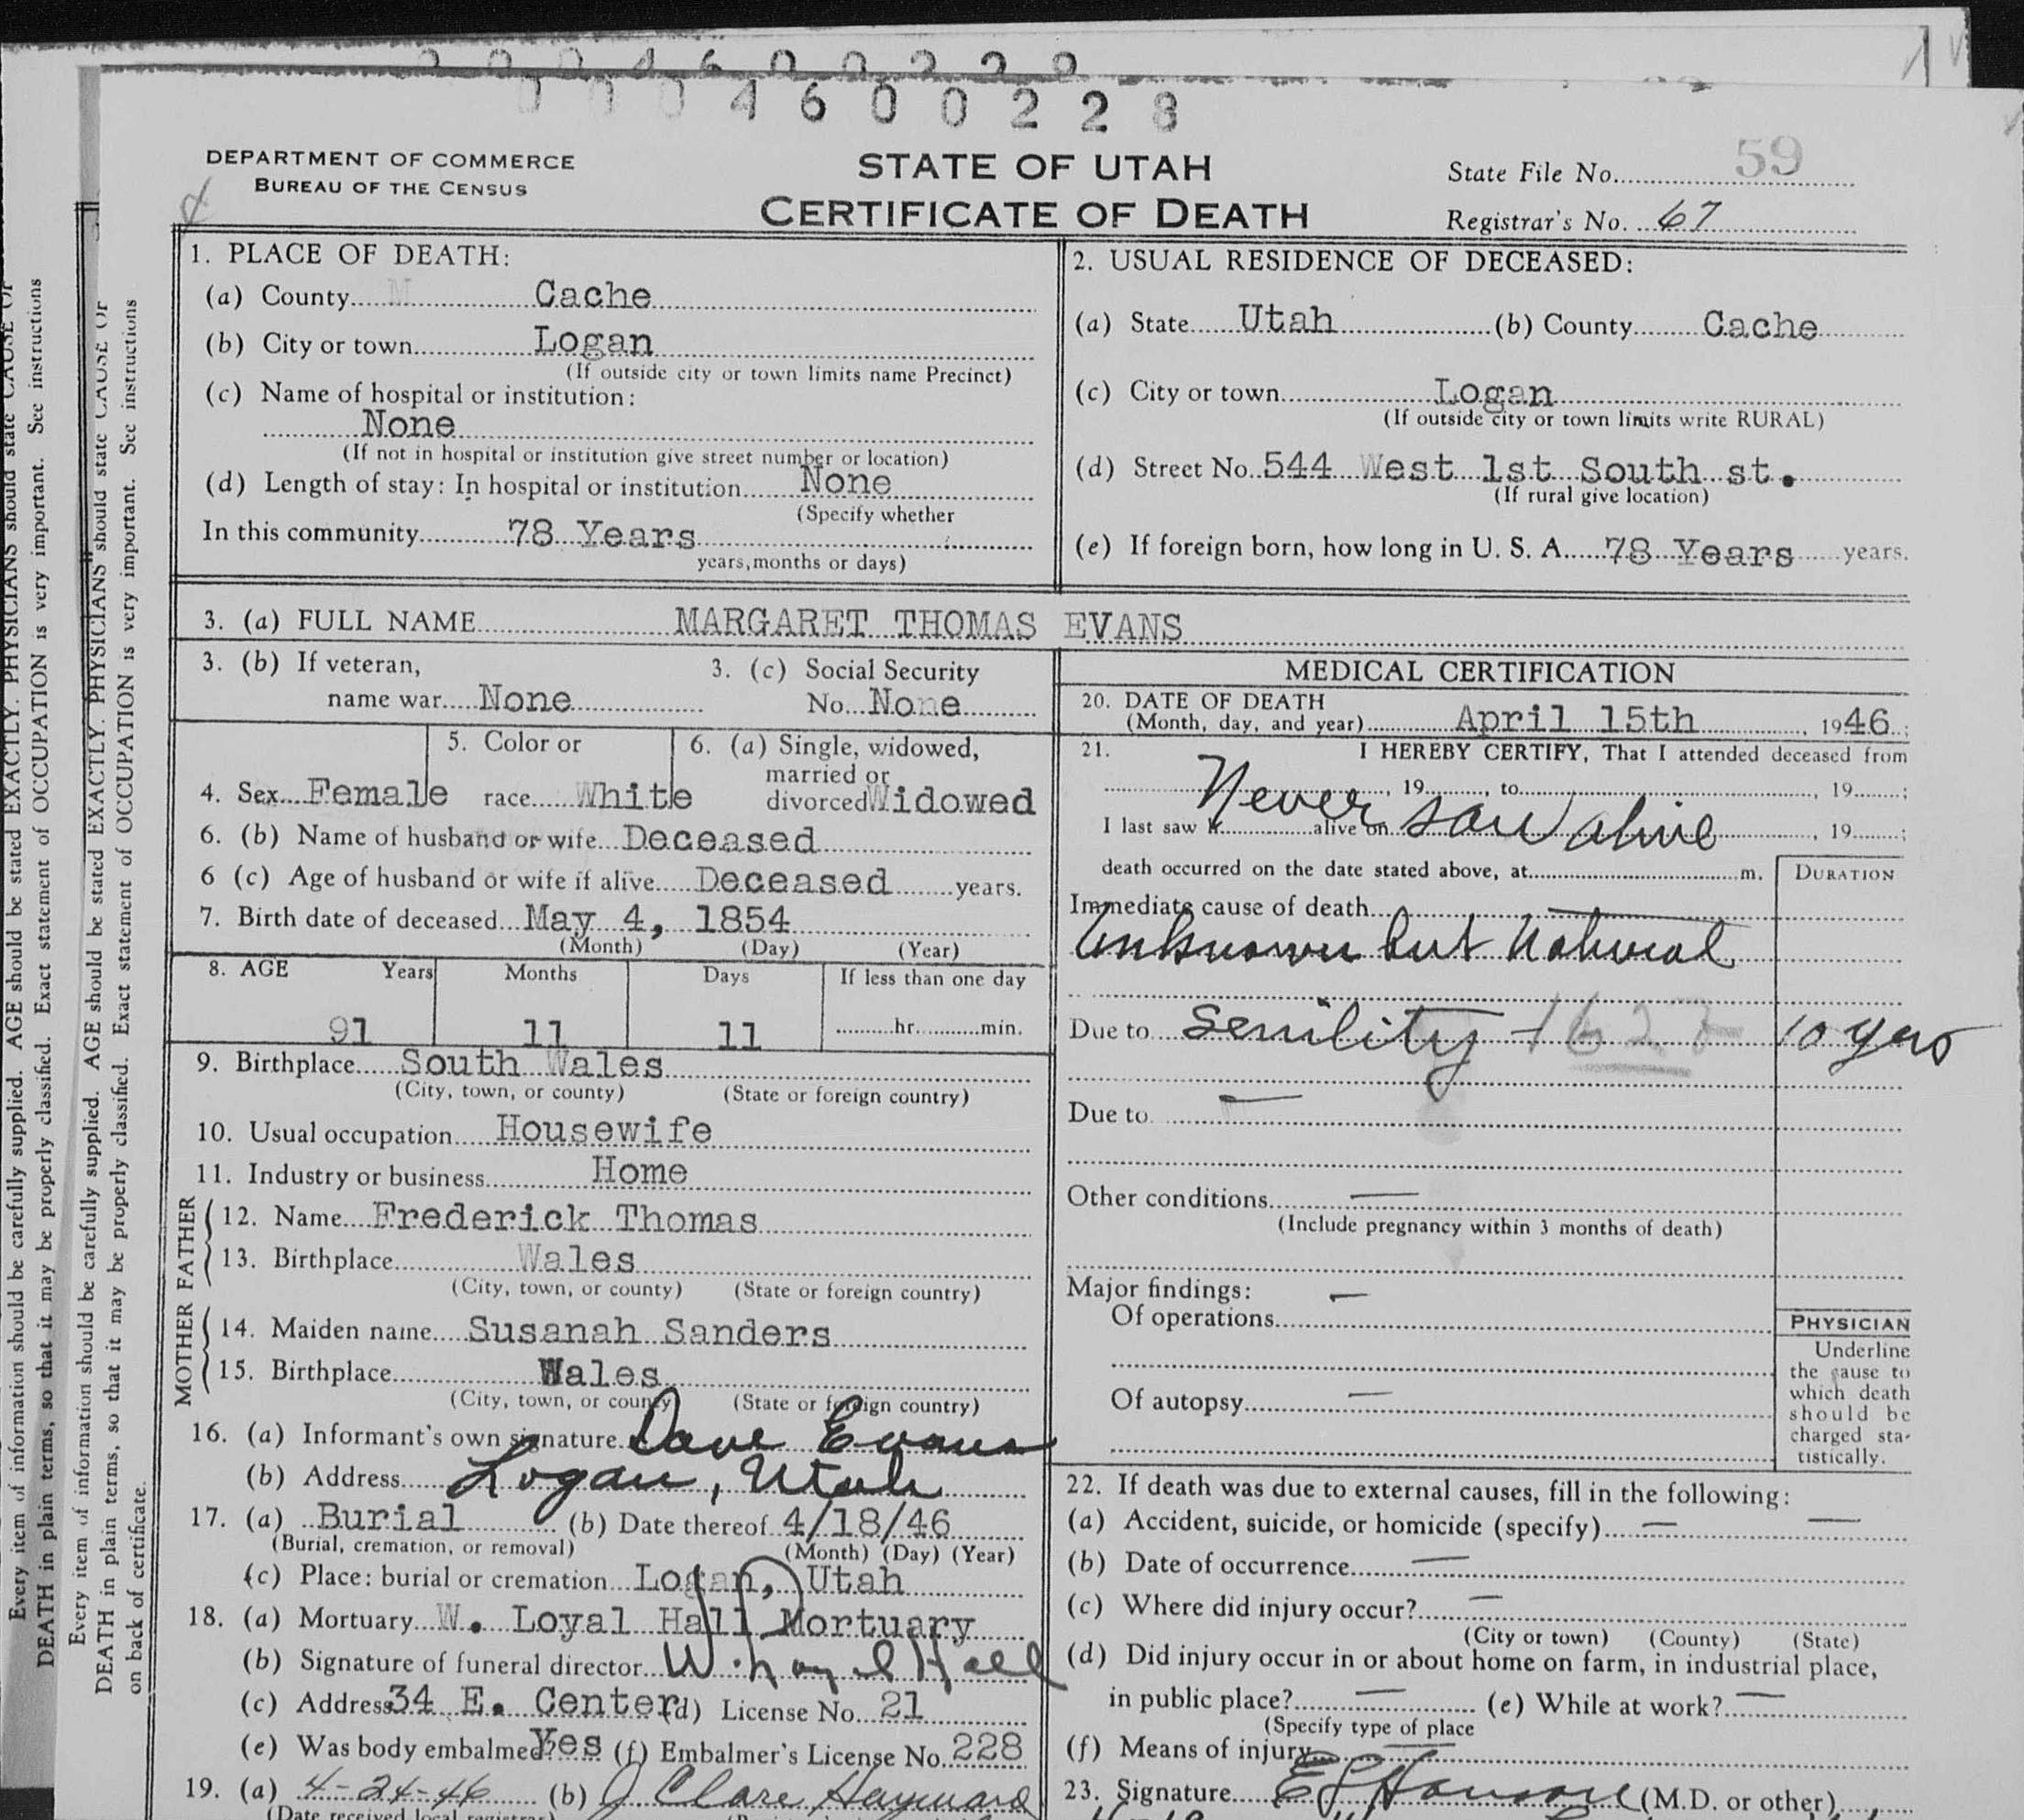 0 0 0 4 6 0 0 2 2 8
DEPARTMENT OF COMMERCE
BUREAU OF THE CENSUS
STATE OF UTAH
CERTIFICATE OF DEATH
State File No. 59
Registrar's No. 67
1. PLACE OF DEATH:
(a) County Cache
(b) City or town Logan
(If outside city or town limits name Precinct)
(c) Name of hospital or institution:
None
(If not in hospital or institution give street number or location)
(d) Length of stay: In hospital or institution None
(Specify whether
In this community 78 Years
years, months or days)
2. USUAL RESIDENCE OF DECEASED:
(a) State Utah (b) County Cache
(c) City or town Logan
(If outside city or town limits write RURAL)
(d) Street No. 544 West 1st South st.
(If rural give location)
(e) If foreign born, how long in U. S. A. 78 Years years.
3. (a) FULL NAME MARGARET THOMAS EVANS
3. (b) If veteran,
name war None
3. (c) Social Security
No. None
4. Sex Female
5. Color or
race White
6. (a) Single, widowed,
married or
divorced Widowed
6. (b) Name of husband or wife Deceased
6 (c) Age of husband or wife if alive Deceased years.
7. Birth date of deceased May 4, 1854
(Month) (Day) (Year)
8. AGE Years Months Days If less than one day
91 11 11 hr. min.
9. Birthplace South Wales
(City, town, or county) (State or foreign country)
10. Usual occupation Housewife
11. Industry or business Home
FATHER
12. Name Frederick Thomas
13. Birthplace Wales
(City, town, or county) (State or foreign country)
MOTHER
14. Maiden name Susanah Sanders
15. Birthplace Wales
(City, town, or county) (State or foreign country)
16. (a) Informant's own signature Dave Evans
(b) Address Logan, Utah
17. (a) Burial (b) Date thereof 4/18/46
(Burial, cremation, or removal) (Month) (Day) (Year)
(c) Place: burial or cremation Logan, Utah
18. (a) Mortuary W. Loyal Hall Mortuary
(b) Signature of funeral director W. Loyal Hall
(c) Address 34 E. Center (d) License No. 21
(e) Was body embalmed? Yes (f) Embalmer's License No. 228
19. (a) 4-24-46 (b) J Clare Hayward
(Date received local registrar)
MEDICAL CERTIFICATION
20. DATE OF DEATH
(Month, day, and year) April 15th, 1946;
21. I HEREBY CERTIFY, That I attended deceased from
, 19 , to , 19 ;
Never saw alive
I last saw h alive on , 19 ;
death occurred on the date stated above, at m.
DURATION
Immediate cause of death
Unknown but Natural
Due to Senility 162 10 yrs
Due to
Other conditions
(Include pregnancy within 3 months of death)
Major findings:
Of operations
Of autopsy
PHYSICIAN
Underline
the cause to
which death
should be
charged sta-
tistically.
22. If death was due to external causes, fill in the following:
(a) Accident, suicide, or homicide (specify)
(b) Date of occurrence
(c) Where did injury occur?
(City or town) (County) (State)
(d) Did injury occur in or about home on farm, in industrial place,
in public place? (e) While at work?
(Specify type of place
(f) Means of injury
23. Signature (M.D. or other)
Every item of information should be carefully supplied. AGE should be stated EXACTLY. PHYSICIANS should state CAUSE OF
DEATH in plain terms, so that it may be properly classified. Exact statement of OCCUPATION is very important. See instructions
Every item of information should be carefully supplied. AGE should be stated EXACTLY. PHYSICIANS should state CAUSE OF
DEATH in plain terms, so that it may be properly classified. Exact statement of OCCUPATION is very important. See instructions
on back of certificate.